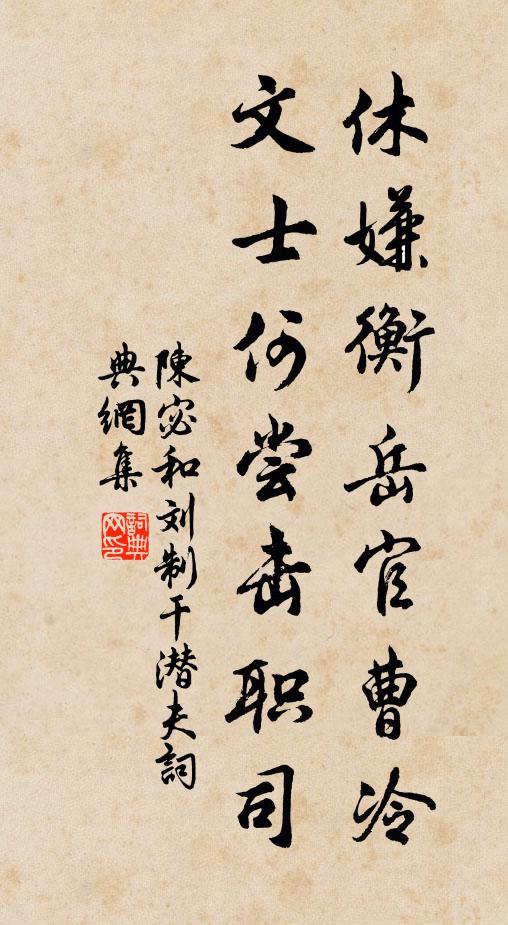 休嫌衡岳官曹冷
文士何尝击职司
陳宓和刘制干潜夫詞
典網集
詞典网印